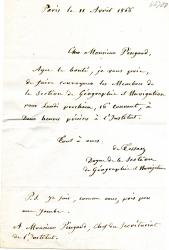 Paris le 11 Avril 1866
Cher Monsieur Pingard,
Ayez la bonté, je vous prie,
de faire convoquer les Membres de
la Section de Géographie et Navigation
pour Lundi prochain, 16 courant, à
deux heures précises à l'Institut.
Tout à vous
de Tessan
Doyen de la Section
de Géographie et Navigation
P.S. Je suis, comme vous, pris par
une jambe.
A Monsieur Pingard, Chef du Secrétariat
de l'Institut.